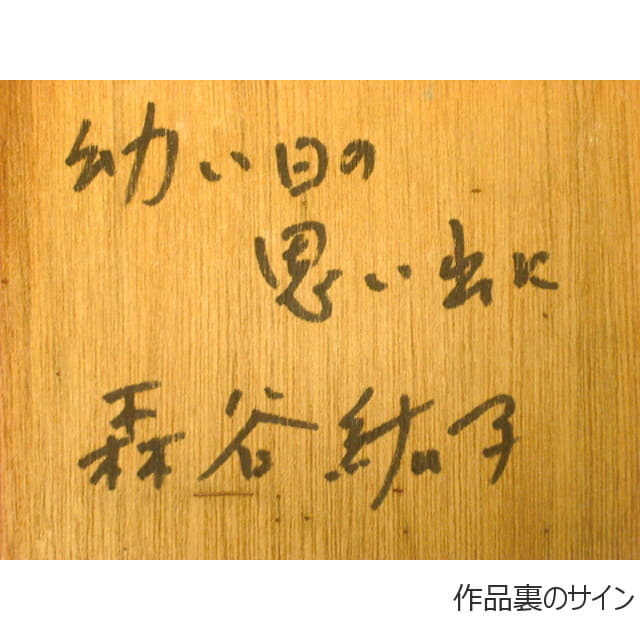 幼い日の
思い出に
森谷結子
作品裏のサイン